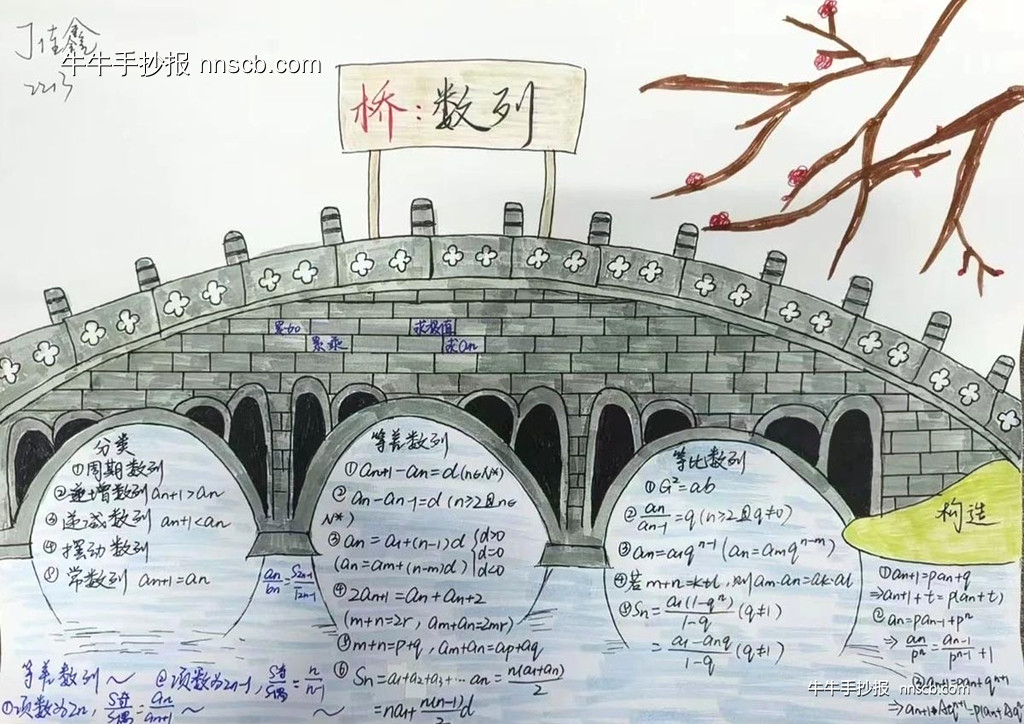 丁佳鑫
牛牛手抄报 nnscb.com
2213
桥：数列
累加
求最值
累乘
求an
分类
①周期数列
②递增数列 an+1>an
③递减数列 an+1<an
④摆动数列
⑤常数列 an+1=an
an/bn=S2n-1/T2n-1
等差数列
①an+1-an=d(n∈N*)
②an-an-1=d (n≥2且n∈
N*)
③an=a1+(n-1)d {d>0
d=0
(an=am+(n-m)d) d<0
④2an+1=an+an+2
(m+n=2r, am+an=2ar)
⑤m+n=p+q, am+an=ap+aq
⑥Sn=a1+a2+a3+…an=n(a1+an)/2
=na1+n(n-1)/2 d
等比数列
①G²=ab
②an/an-1=q(n≥2且q≠0)
③an=a1q^n-1(an=amq^n-m)
④若m+n=k+l,则am·an=ak·al
⑤Sn=a1(1-q^n)/1-q (q≠1)
=a1-anq/1-q (q≠1)
构造
①an+1=pan+q
⇒an+1+t=p(an+t)
②an=pan-1+p^n
⇒an/p^n=an-1/p^n-1+1
③an+1=pan+q^n+1
牛牛手抄报 nnscb.com
等差数列~ ②项数为2n-1, S奇/S偶=n/n-1
①项数为2n, S奇/S偶=an/an+1 ~ ~